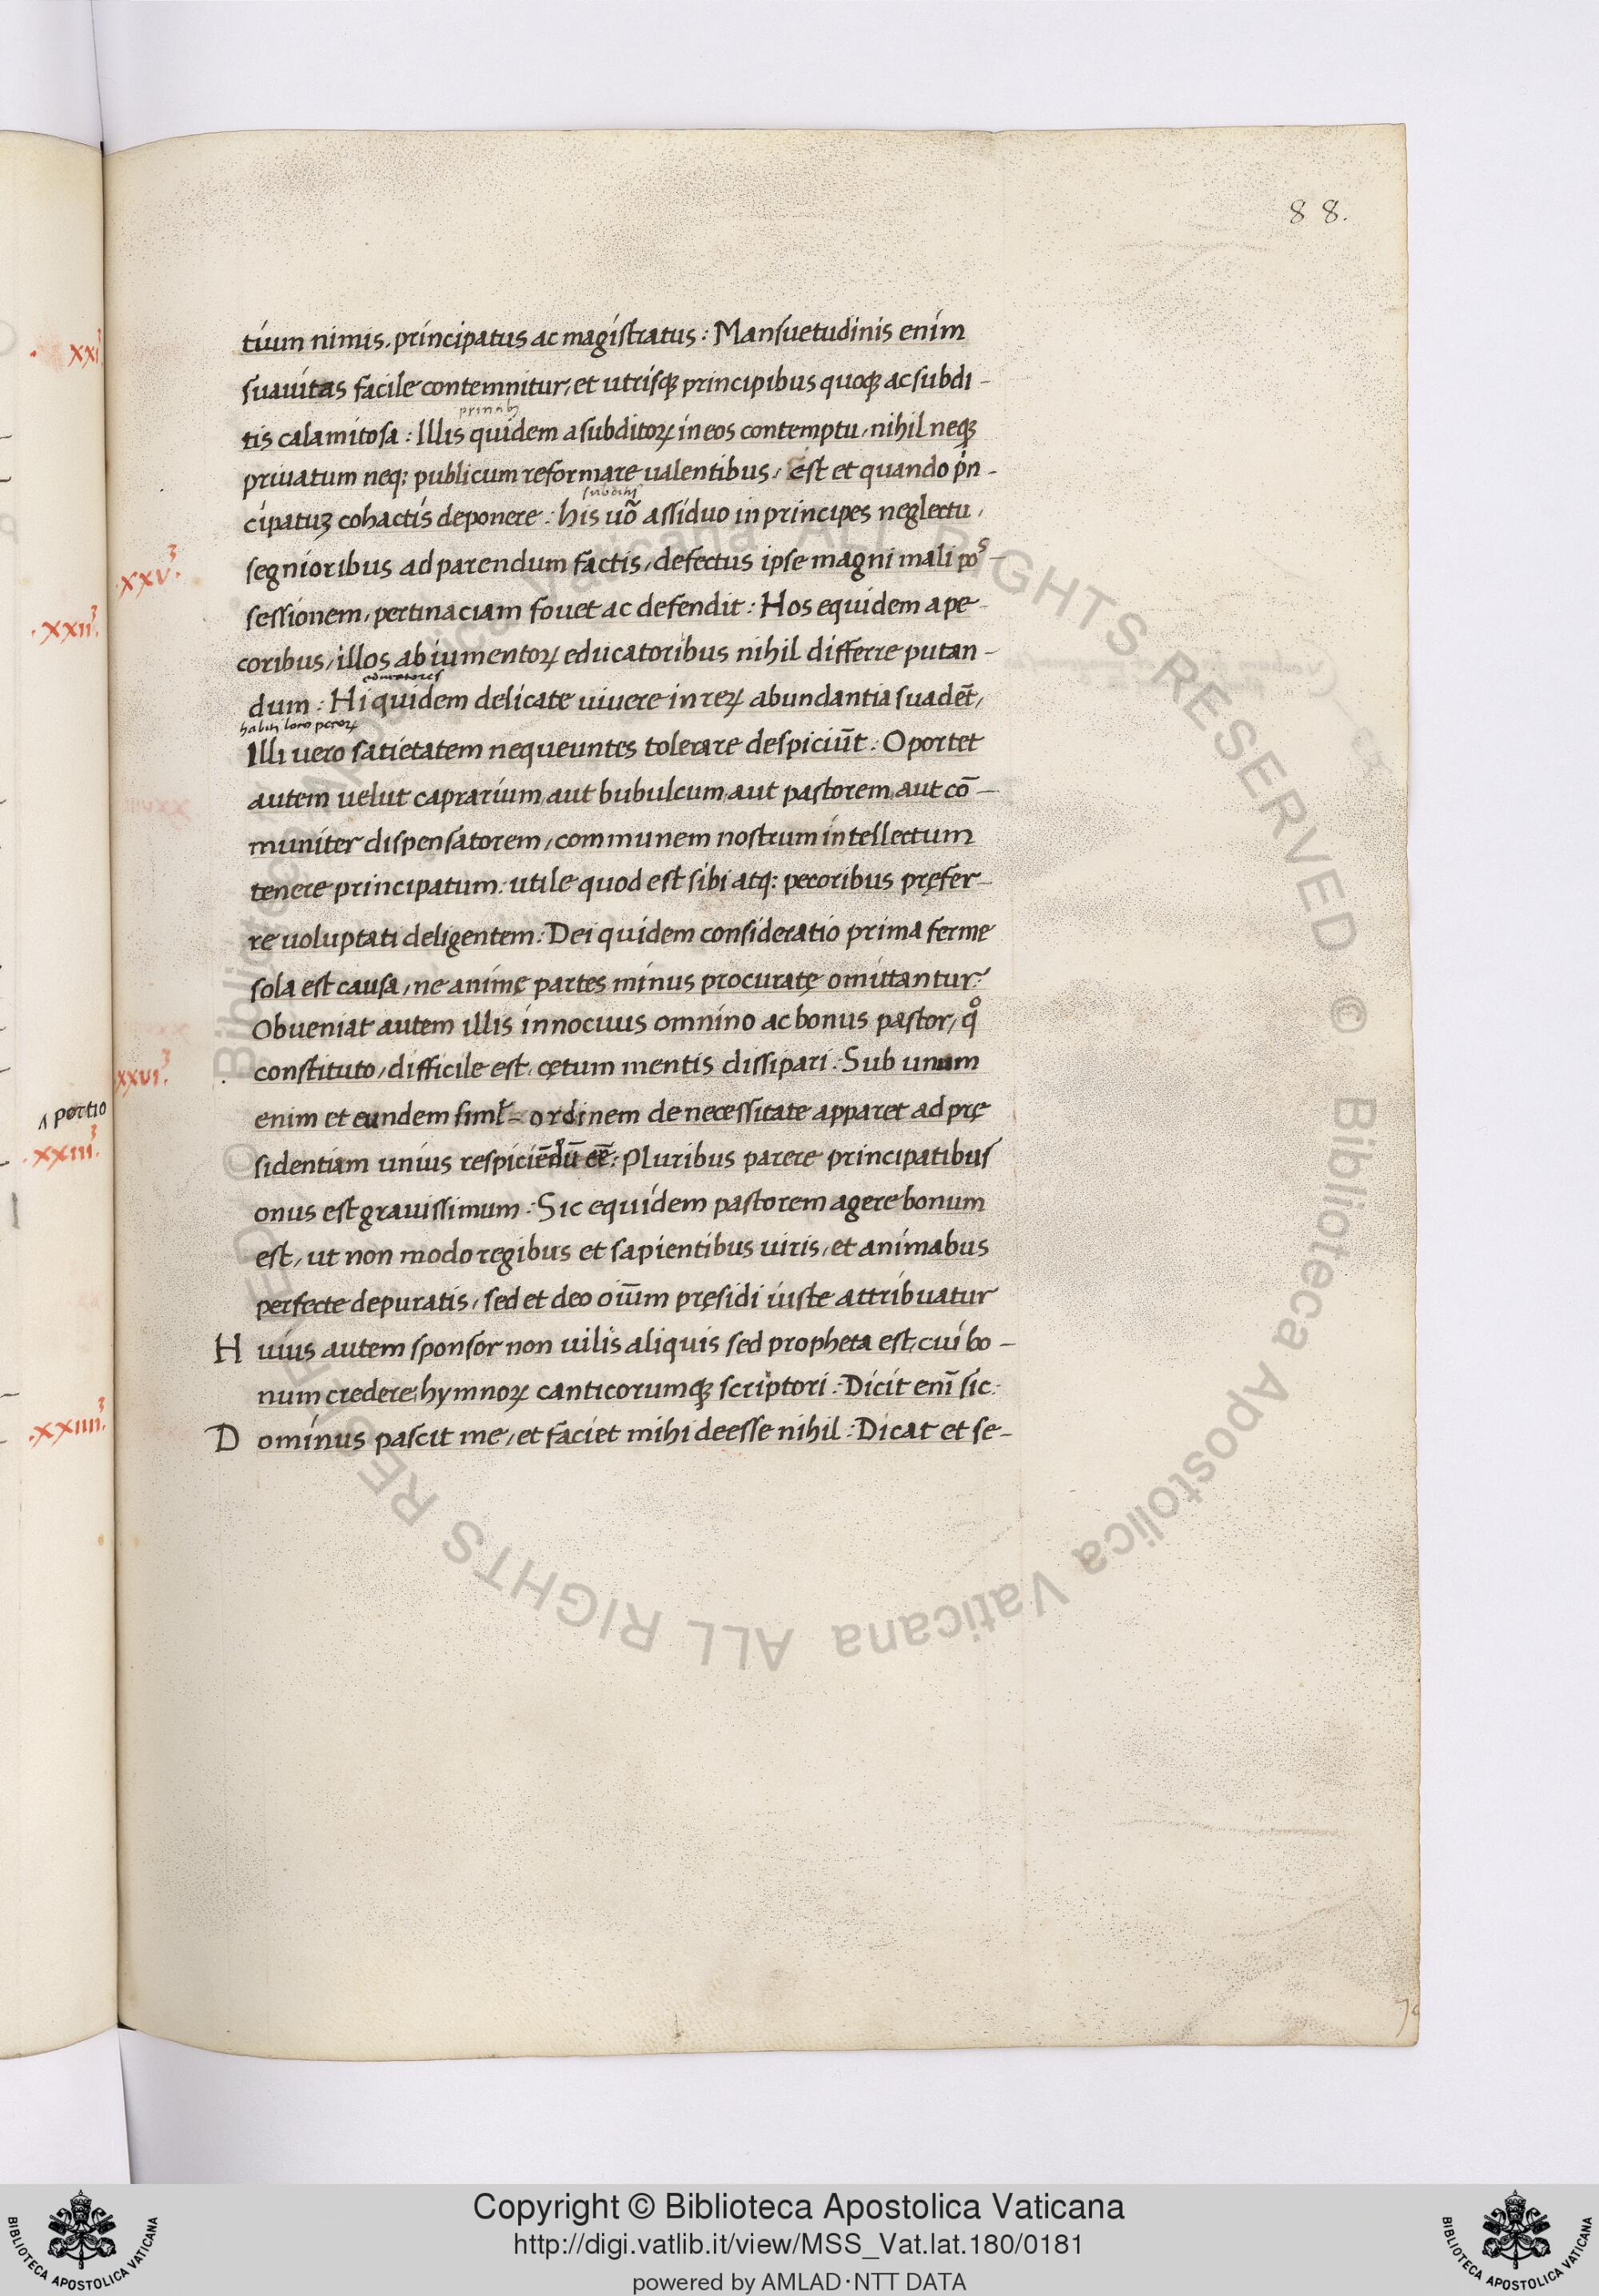 88.
tium nimis, principatus ac magistratus: Mansuetudinis enim
suauitas facile contemnitur, et utrisqꝫ principibus quoqꝫ ac subdi-
tis calamitosa: Illis quidem a subditoꝝ in eos contemptu, nihil neqꝫ
priuatum neq: publicum reformare ualentibus, Est et quando p̍n-
subditis
cipatuꝫ cohactis deponere: his uo᷉ assiduo in principes neglectu,
segnioribus ad parendum factis, defectus ipse magni mali pos-
sessionem, pertinaciam fouet ac defendit: Hos equidem a pe-
coribus, illos ab iumentoꝝ educatoribus nihil differre putan-
educatores
dum: Hi quidem delicate uiuere in reꝝ abundantia suadēt,
Illi uero satietatem nequeuntes tolerare despiciūt: Oportet
autem uelut caprarium, aut bubulcum, aut pastorem, aut cō-
muniter dispensatorem, communem nostrum intellectum
tenere principatum, utile quod est sibi atq: pecoribus pręfer-
re uoluptati deligentem: Dei quidem consideratio prima ferme
sola est causa, ne animę partes minus procuratę omittantur:
Obueniat autem illis innocuus omnino ac bonus pastor, qͦ
.xxv.³
constituto, difficile est, cętum mentis dissipari: Sub unum
xxvi.³
enim et eundem siml̄- ordinem de necessitate apparet ad prę
sidentiam unius respiciēdū eē: Pluribus parere principatibus
onus est grauissimum: Sic equidem pastorem agere bonum
est, ut non modo regibus et sapientibus uiris, et animabus
perfecte depuratis, sed et deo oīum pręsidi iuste attribuatur
Huius autem sponsor non uilis aliquis sed propheta est, cui bo-
num credere, hymnoꝝ canticorumqꝫ scriptori: Dicit enī sic:
Dominus pascit me, et faciet mihi deesse nihil: Dicat et se-
.xxi³
.xxii³.
∧ portio
.xxiii³.
.xxiiii³.
Biblioteca Apostolica Vaticana ALL RIGHTS RESERVED © Biblioteca Apostolica Vaticana ALL RIGHTS RESERVED ©
Copyright © Biblioteca Apostolica Vaticana
http://digi.vatlib.it/view/MSS_Vat.lat.180/0181
powered by AMLAD·NTT DATA
BIBLIOTECA APOSTOLICA VATICANA
BIBLIOTECA APOSTOLICA VATICANA